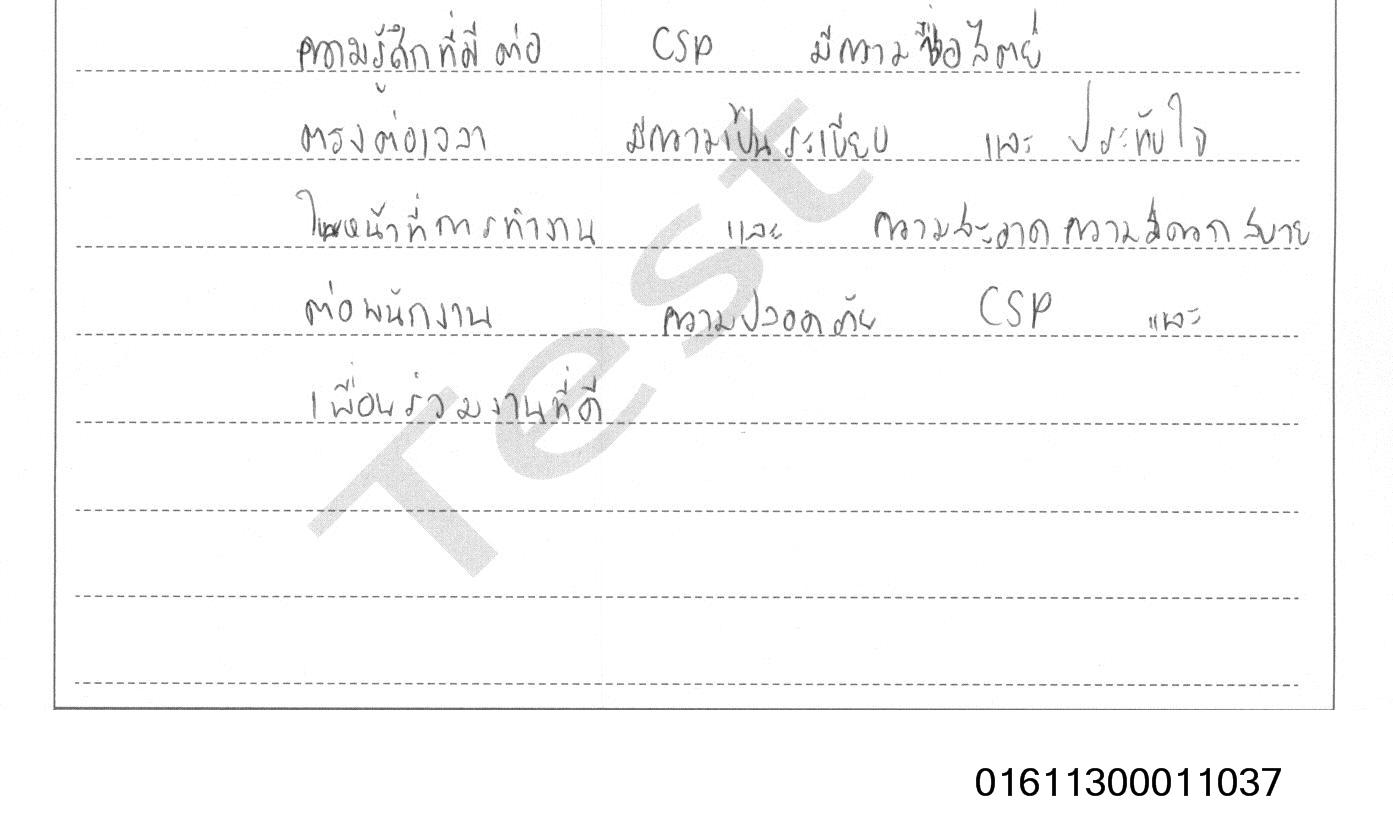 ความรู้สึกที่มี ต่อ CSP มีความซื่อสัตย์
ตรงต่อเวลา มีความเป็นระเบียบ และ ประทับใจ
ในหน้าที่การทำงาน และ ความสะอาด ความสะดวก สบาย
ต่อพนักงาน ความปลอดภัย CSP และ
เพื่อนร่วมงานที่ดี
Test
01611300011037